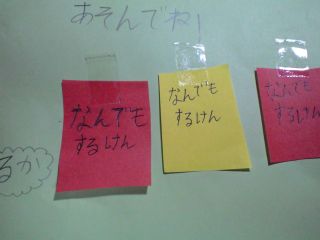 あそんでね!
なんでも
するけん
なんでも
するけん
なんでも
するけん
るか